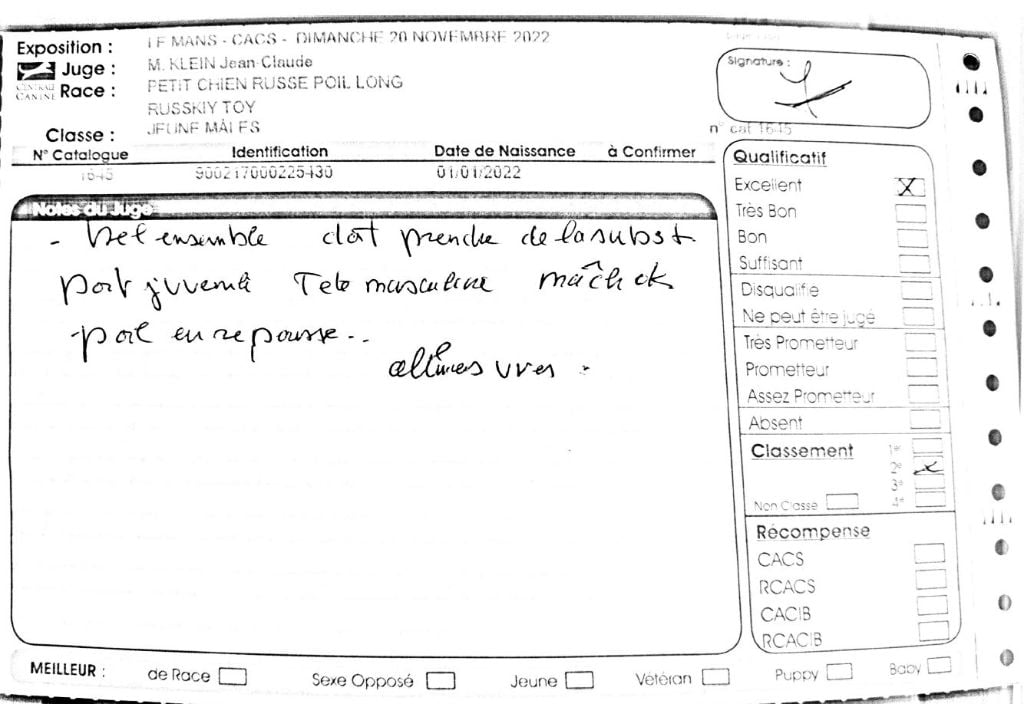 Exposition : LE MANS - CACS - DIMANCHE 20 NOVEMBRE 2022
Juge : M. KLEIN Jean-Claude
CENTRALE CANINE Race : PETIT CHIEN RUSSE POIL LONG
RUSSKIY TOY
Classe : JEUNE MÂLES
Signature :
n° cat 1645
N° Catalogue Identification Date de Naissance à Confirmer
1645 900217000225430 01/01/2022
Notes du Juge
- bel ensemble doit prendre de la subst.
port juvenil Tete masculine mâch ok
- poil en repousse..
allures vives.
Qualificatif
Excellent X
Très Bon
Bon
Suffisant
Disqualifié
Ne peut être jugé
Très Prometteur
Prometteur
Assez Prometteur
Absent
Classement 1er
2e x
3e
Non Classé 4e
Récompense
CACS
RCACS
CACIB
RCACIB
MEILLEUR : de Race Sexe Opposé Jeune Vétéran Puppy Baby